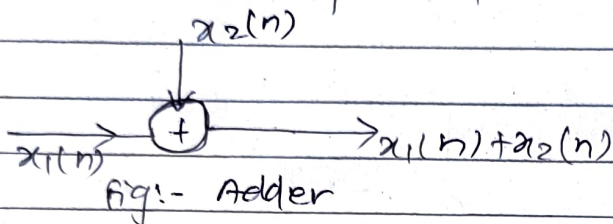 x2(n)
+
x1(n)
x1(n)+x2(n)
fig:- Adder